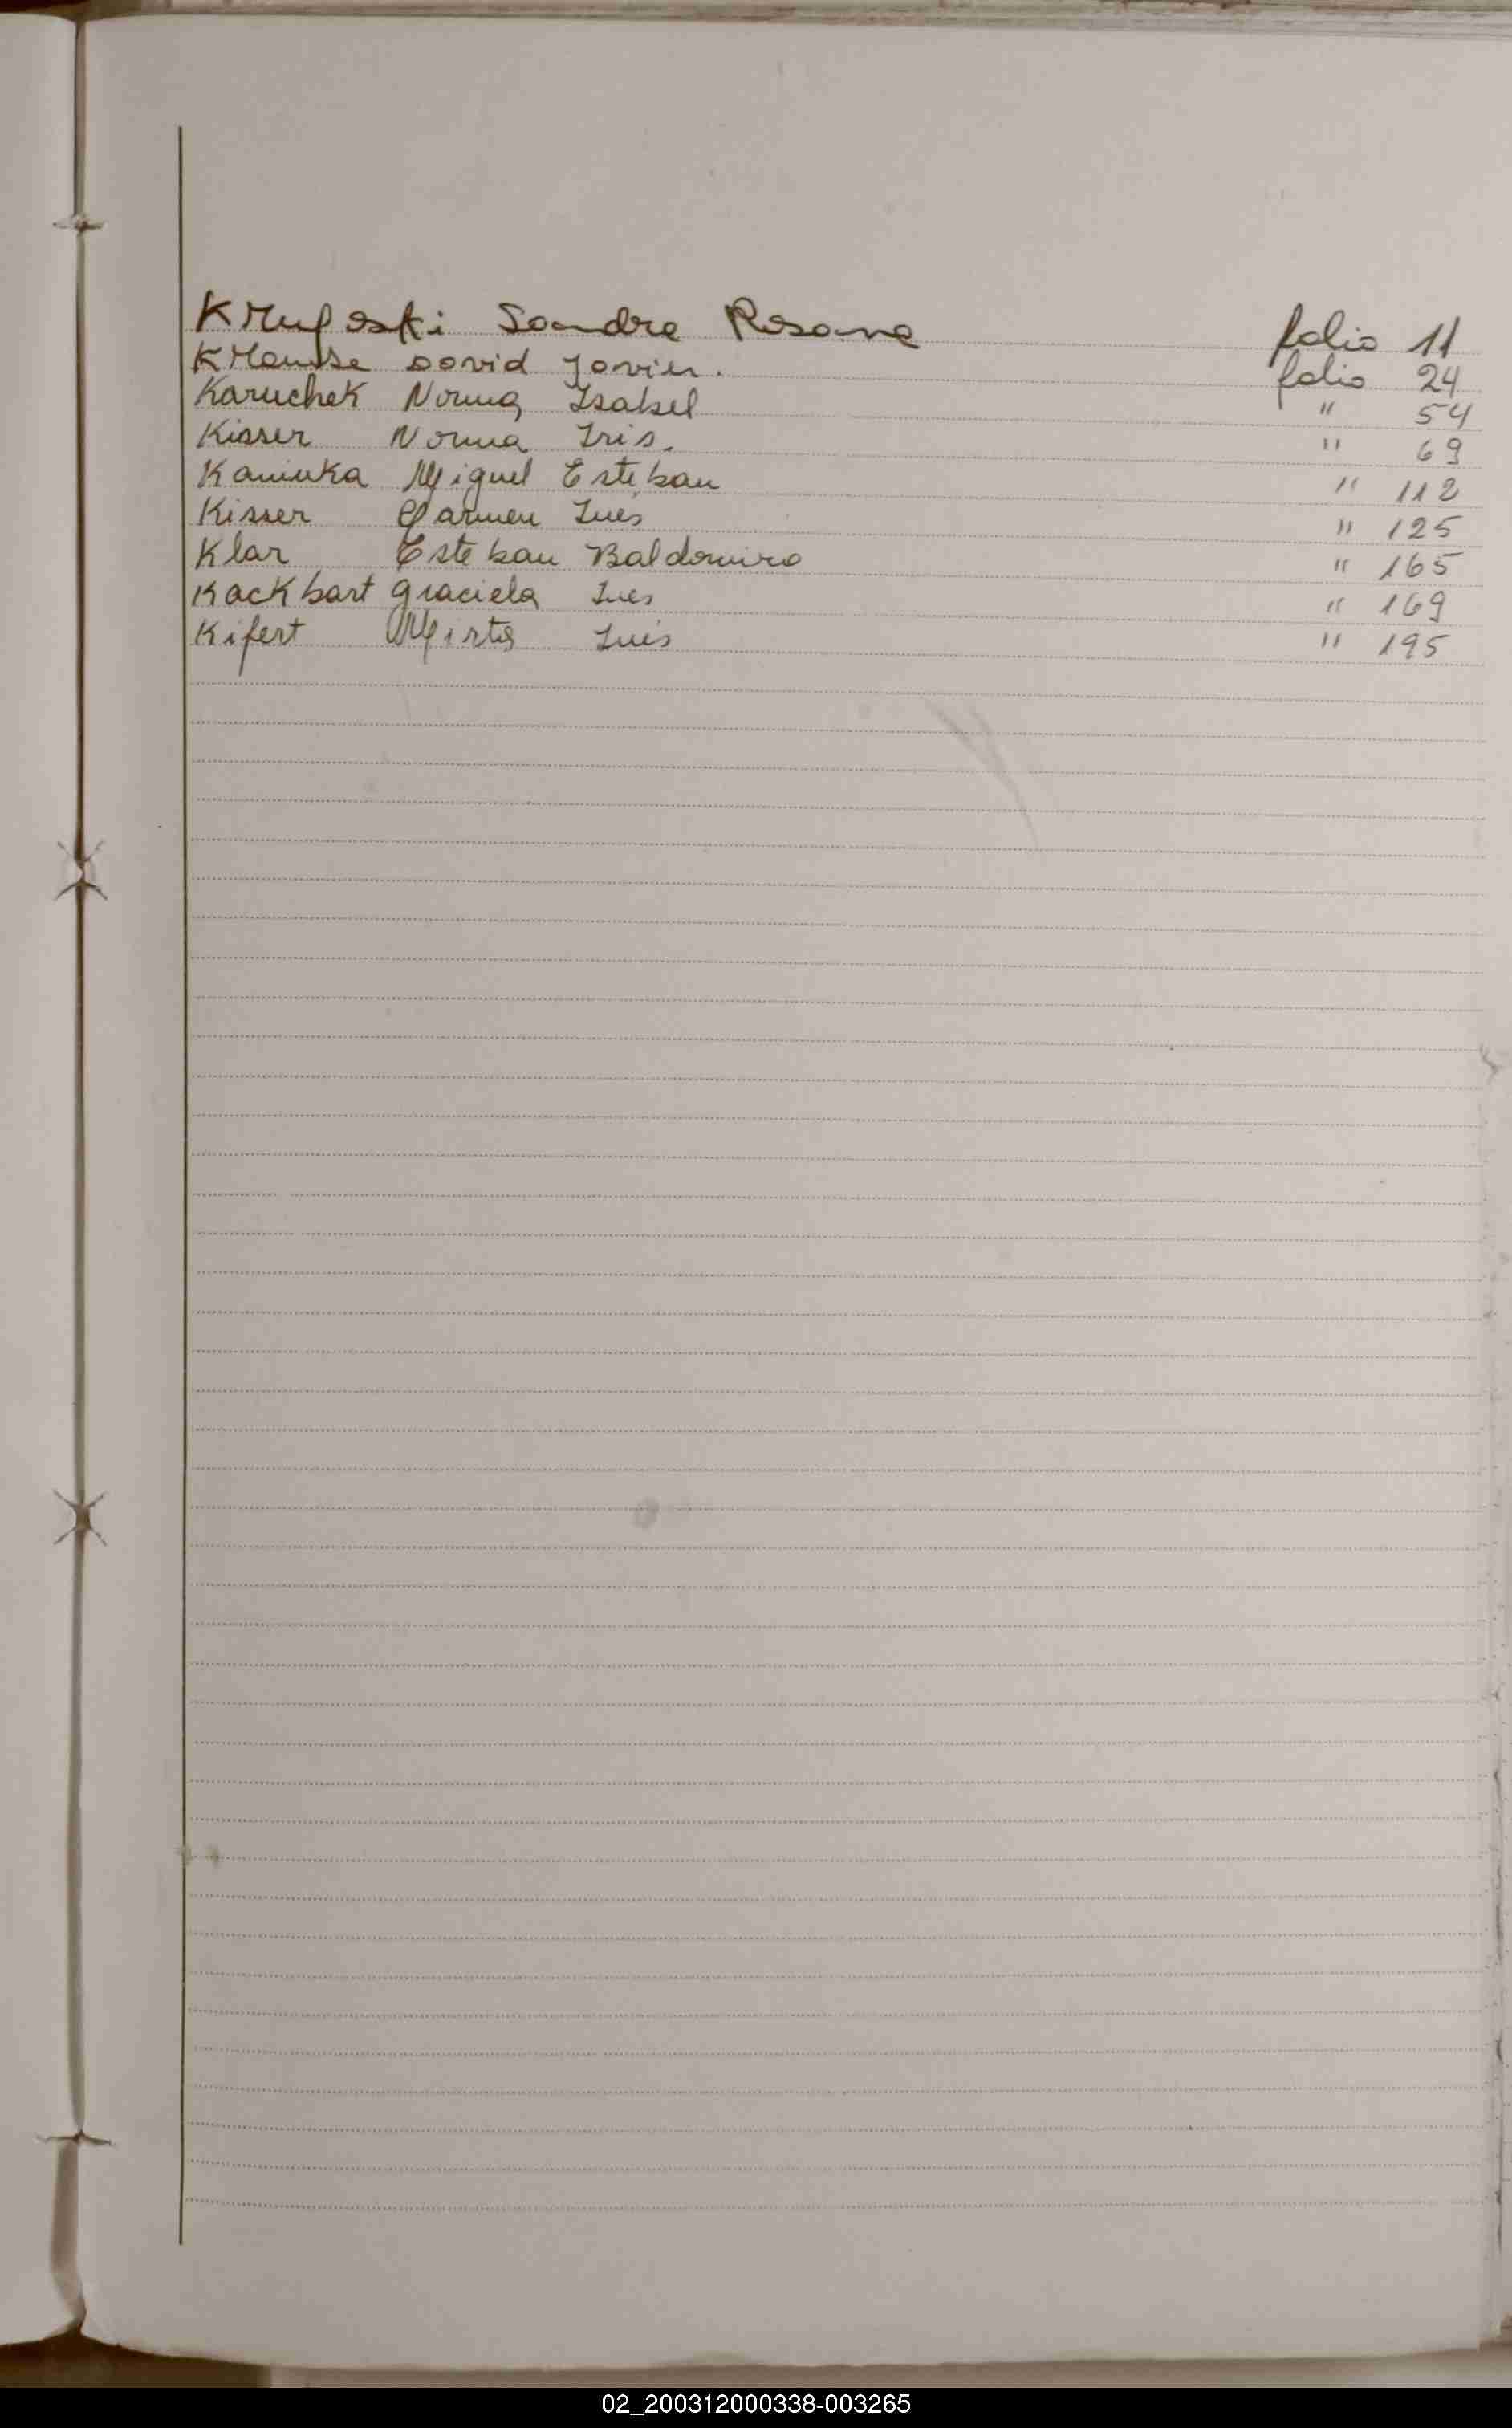 Krufoski Sandra Rosana folio 11
Krausse David Javier. folio 24
Karuchek Norma Isabel " 54
Kisser Norma Iris. " 69
Kaniuka Miguel Esteban " 112
Kisser Carmen Ines " 125
Klar Esteban Baldomiro " 165
Kackbart Graciela Ines " 169
Kifert Mirta Inés " 195
02_200312000338-003265